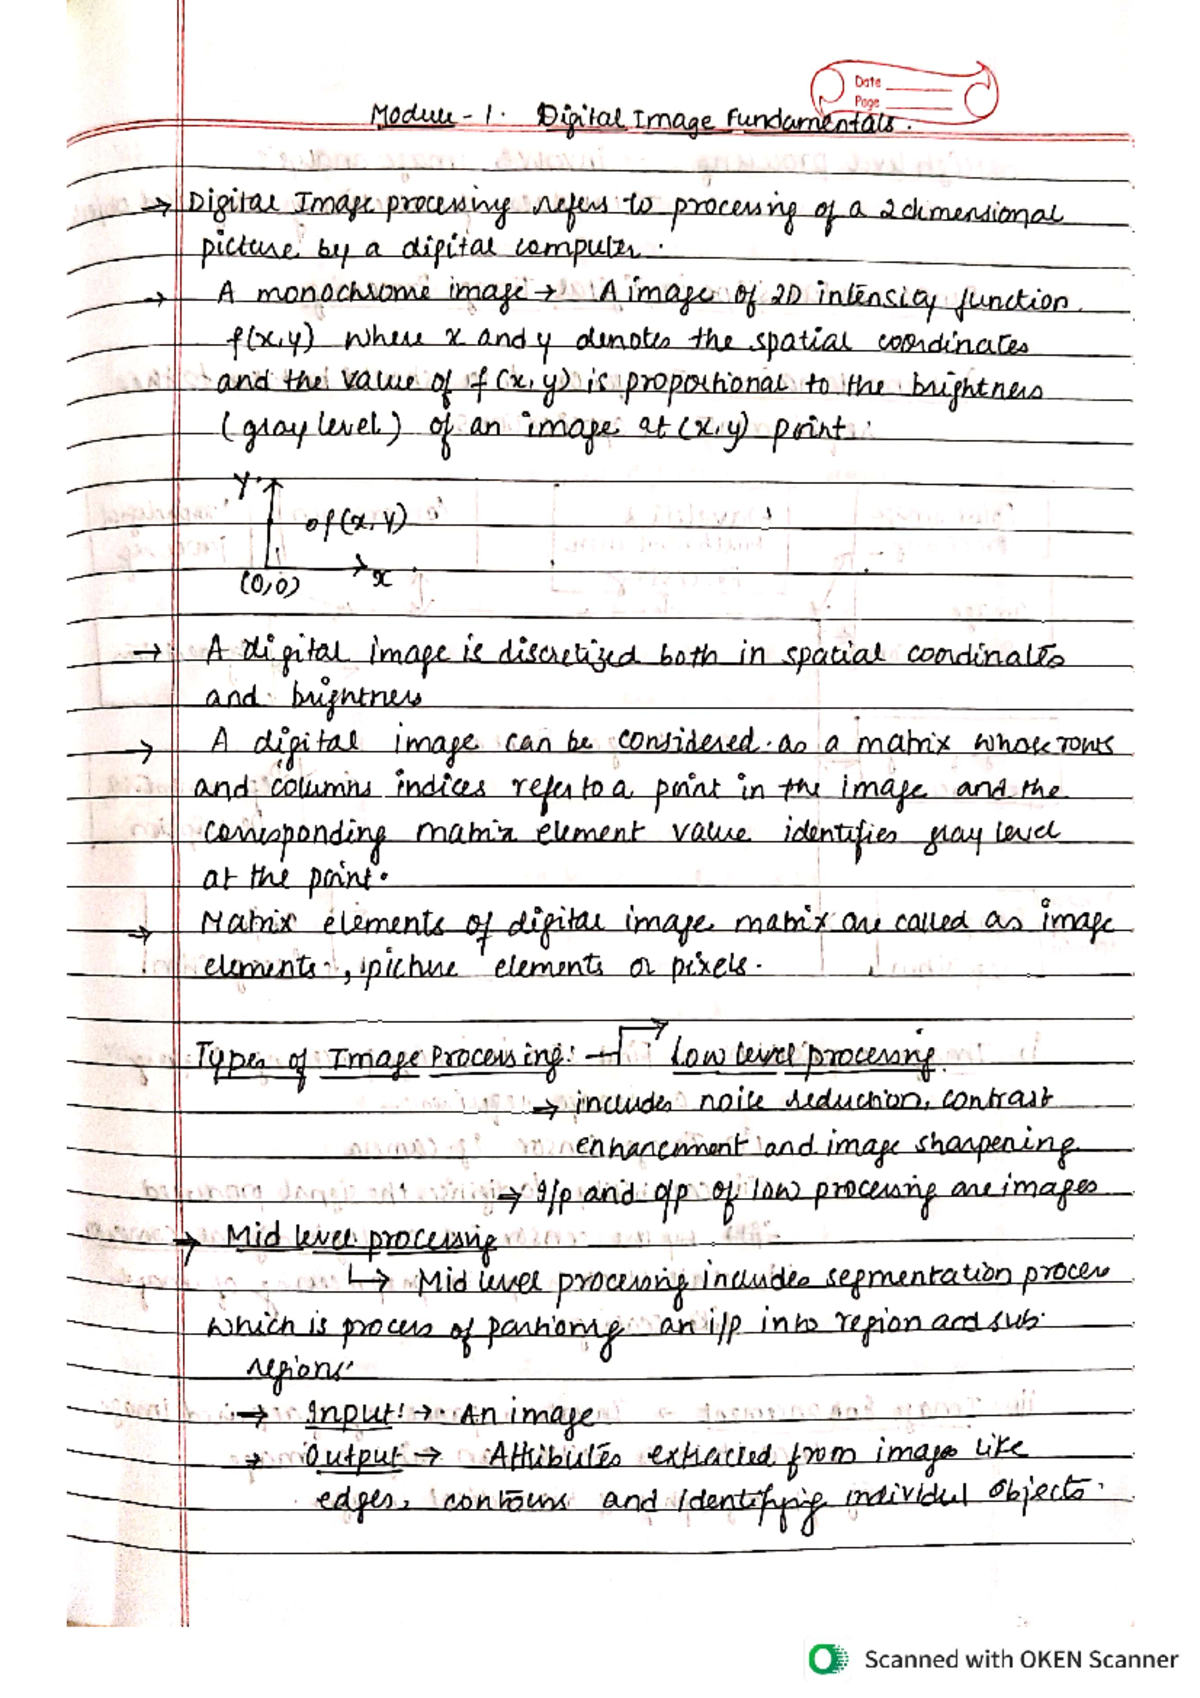 Date
Page
Module - 1. Digital Image Fundamentals.
→ Digital Image processing refers to processing of a 2 dimensional
picture by a digital computer.
→ A monochrome image → A image of 2D intensity function
f(x,y) where x and y denotes the spatial coordinates
and the value of f(x,y) is proportional to the brightness
(gray level) of an image at (x,y) point.
Y
o f(x,y)
→ x
(0,0)
→ A digital image is discretized both in spatial coordinates
and brightness
→ A digital image can be considered as a matrix whose rows
and columns indices refers to a point in the image and the
corresponding matrix element value identifies gray level
at the point.
→ Matrix elements of digital image matrix are called as image
elements, picture elements or pixels.
Types of Image Processing: → Low level processing
→ includes noise reduction, contrast
enhancement and image sharpening
→ i/p and o/p of low processing are images
→ Mid level processing
↳ Mid level processing includes segmentation process
which is process of partioning an i/p into region and sub
regions.
→ Input: → An image
→ Output → Attributes extracted from image like
edges, contours and identifying individul objects.
Scanned with OKEN Scanner